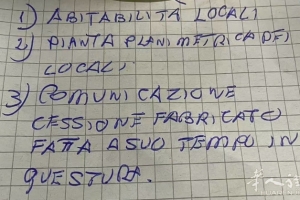 1) ABITABILITÀ LOCALI
2) PIANTA PLANIMETRICA DEI
LOCALI
3) COMUNICAZIONE
CESSIONE FABRICATO
FATTA A SUO TEMPO IN
QUESTURA.